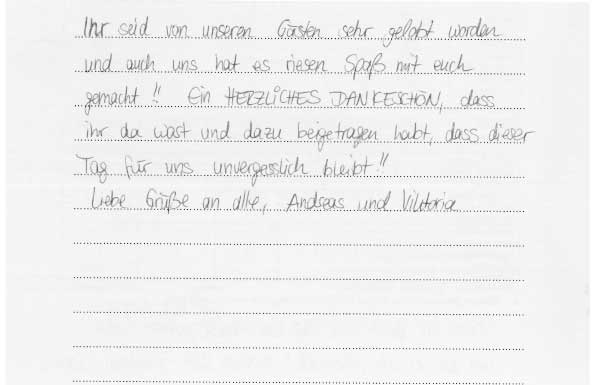 Ihr seid von unseren Gästen sehr gelobt worden
und auch uns hat es riesen Spaß mit euch
gemacht!! Ein HERZLICHES DANKESCHÖN, dass
ihr da wart und dazu beigetragen habt, dass dieser
Tag für uns unvergesslich bleibt!!
Liebe Grüße an alle, Andreas und Viktoria